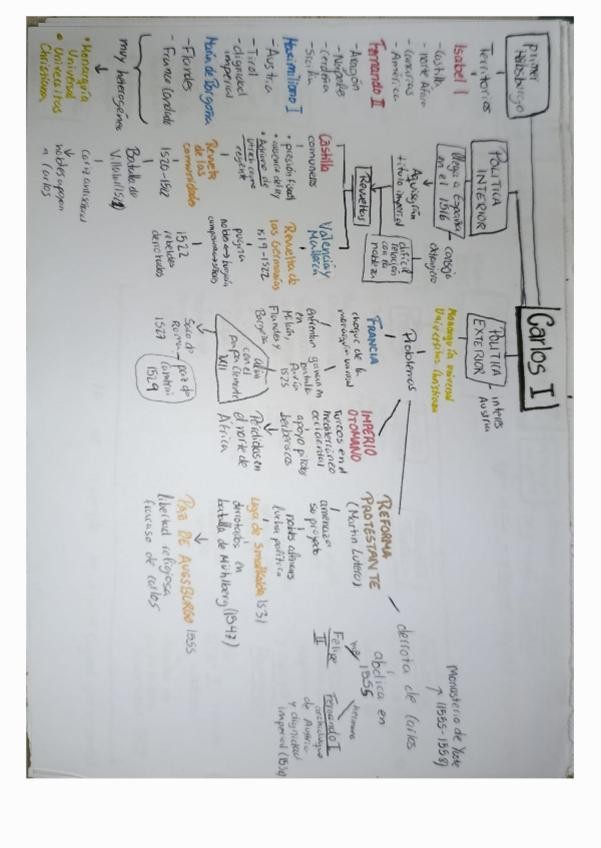 Carlos I
primer Habsburgo
Territorios
Isabel I
- Castilla
- norte África
- Canarias
- América
Fernando II
- Aragón
- Nápoles
- Cerdeña
- Sicilia
Maximiliano I
- Austria
- Tirol
- dignidad
imperial
María de Borgoña
- Flandes
- Franco Condado
muy heterogéneo
• Monarquía
Universal
• Universitas
Christiana
POLITICA
INTERIOR
llega a España
en el 1516
consejo
extranjero
Aquisgrán
título imperial
difícil
relación
con la
nobleza
Revueltas
Castilla
comuneros
• presión fiscal
• ausencia del rey
• Adriano de
Utrech como
regente
Revuelta
de las
comunidades
1520-1522
Batalla de
Villalar
nobles apoyan
a Carlos
Valencia y
Mallorca
Revuelta de
las Germanías
1519-1522
pugna
1522
rebeldes
derrotados
POLITICA
EXTERIOR
interes
Austria
Monarquía universal
Universitas Christiana
Problemas
FRANCIA
choque de la
monarquía universal
enfrentan
en
Milán,
Flandes y
Borgoña
ganan en
batalla
Pavía
1525
alía
con el
papa Clemente
VII
Saco de
Roma
1527
paz de
Cambrai
1529
IMPERIO
OTOMANO
Turcos en el
mediterráneo
occidental
apoyo piratas
berberiscos
Pérdidas en
el norte de
África
REFORMA
PROTESTANTE
(Martín Lutero)
amenaza
su proyecto
lucha política
Liga de Smalkalda 1531
derrotados en
batalla de Mühlberg (1547)
PAZ DE AUGSBURGO 1555
libertad religiosa
fracaso de Carlos
derrota de Carlos
abdica en
1555
Monasterio de Yuste
(1555-1558)
Felipe
II
hermano
Fernando I
archiduque
de Austria
y dignidad
imperial